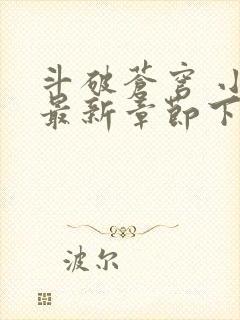 斗破苍穹 小
最新章节下
波尔